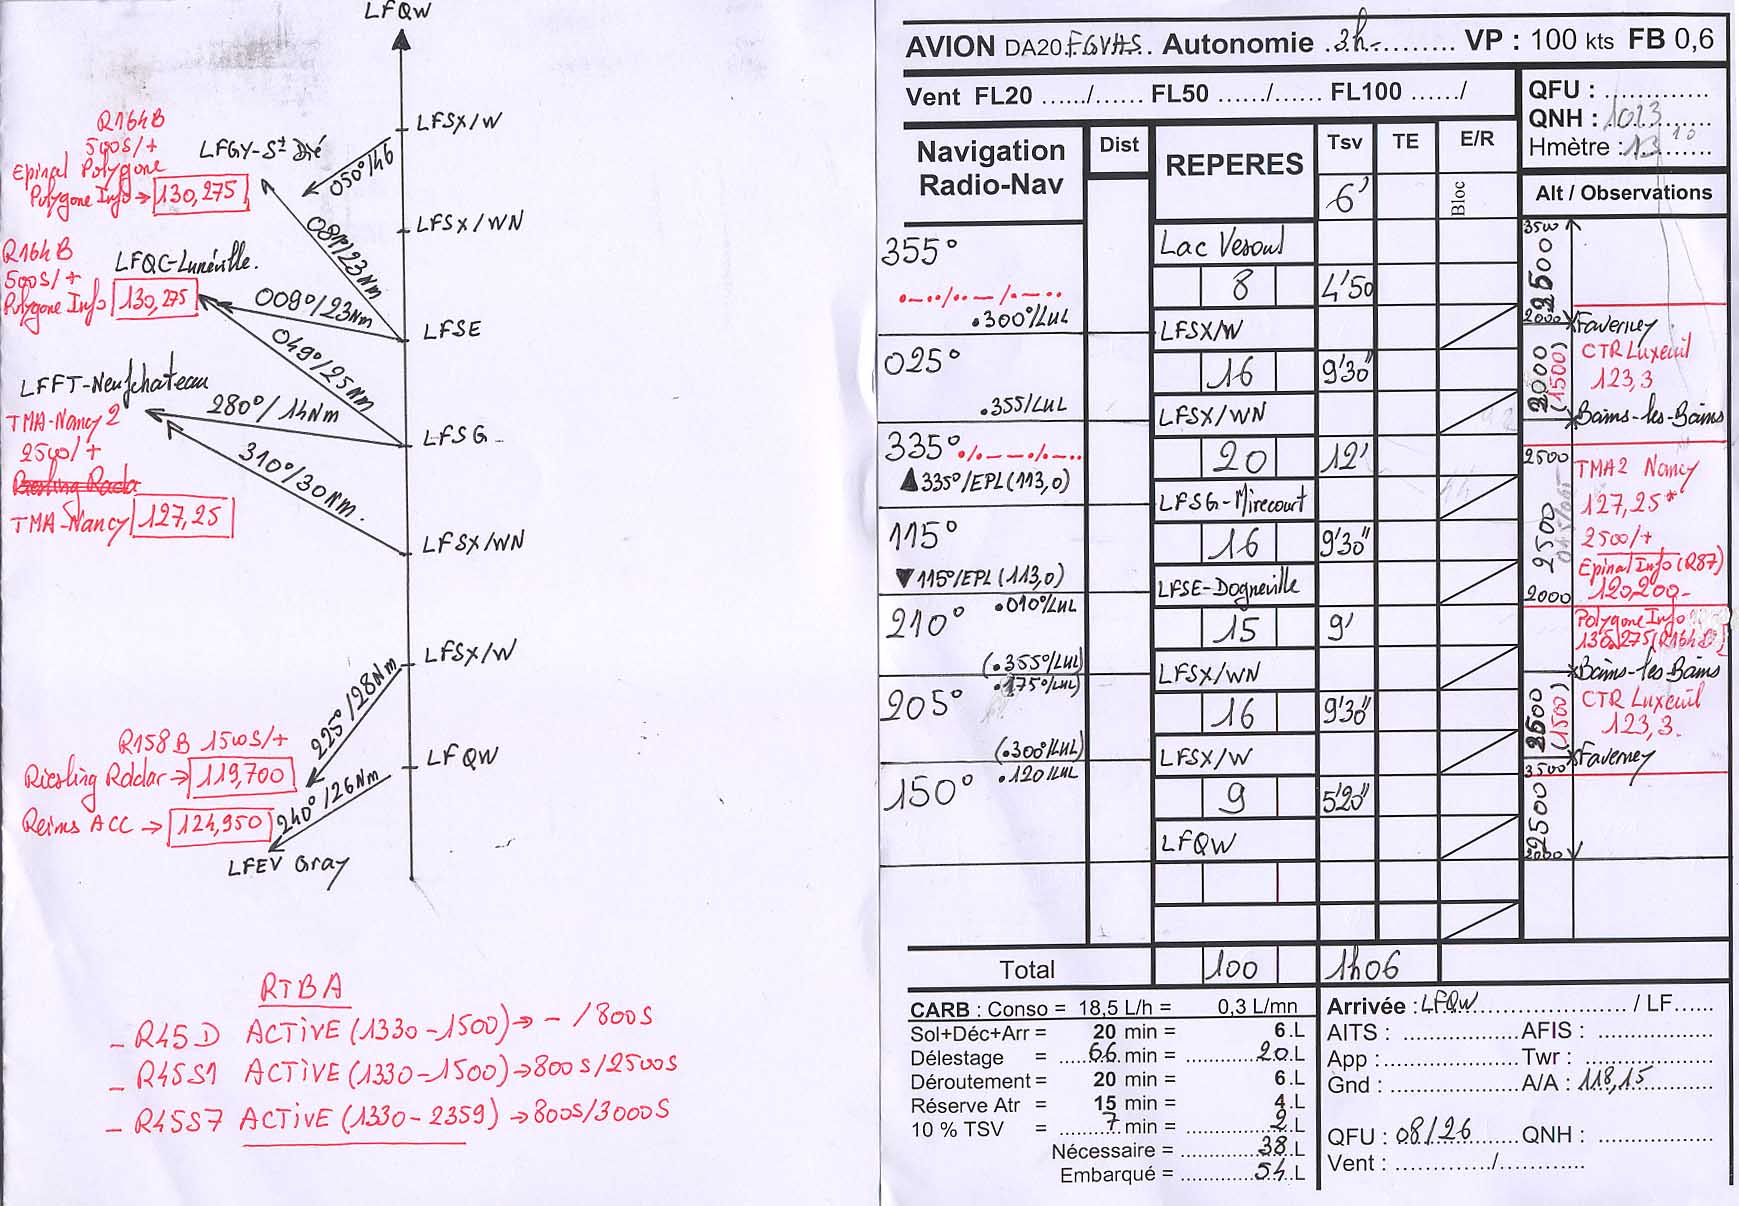 LFQW
LFSX/W
LFSX/WN
LFSE
LFSG
LFSX/WN
LFSX/W
LFQW
R164B
500S/+
Epinal Polygone
Polygone Info → 130,275
LFGY-St Dié
050°/46
081°/23Nm
R164B
500S/+
Polygone Info 130,275
LFQC-Lunéville.
009°/23Nm
049°/25Nm
LFFT-Neufchateau
TMA-Nancy 2
2500/+
TMA-Nancy 127,25
280°/14Nm
310°/30Nm.
225°/28Nm
R158B 1500S/+
Riesling Raddar → 119,700
Reims ACC → 124,950
240°/26Nm
LFEV Gray
RTBA
- R45D ACTIVE (1330-1500) → - /800S
- R45S1 ACTIVE (1330-1500) → 800S/2500S
- R45S7 ACTIVE (1330-2359) → 800S/3000S
AVION DA20 FGVHS.. Autonomie .3h-......... VP : 100 kts FB 0,6
Vent FL20 ....../...... FL50 ....../...... FL100 ....../
QFU : .............
QNH : 1023
Hmètre : 13 10
Navigation
Radio-Nav
Dist
REPERES
Tsv
TE
E/R
6'
Bloc
Alt / Observations
355°
Lac Vesoul
8
4'50
.300°/LUL
LFSX/W
025°
16
9'30"
.355/LUL
LFSX/WN
335°
20
12'
▲335°/EPL (113,0)
LFSG-Mirecourt
115°
16
9'30"
▼115°/EPL (113,0)
LFSE-Dogneville
.010°/LUL
210°
15
9'
(.355°/LUL)
LFSX/WN
.175°/LUL)
205°
16
9'30"
(.300°/LUL)
LFSX/W
.120/LUL
150°
9
5'20"
LFQW
3500
2500
2000
Faverney
2000
(1500)
CTR Luxeuil
123,3
Bains-les-Bains
2500
2500
TMA2 Nancy
127,25*
2500/+
Epinal Info (R87)
120,200-
2000
Polygone Info
130,275 (R164B)
Bains-les-Bains
2500
(1500)
CTR Luxeuil
123,3.
Faverney
3500
2500
2000
Total
100
1h06
CARB : Conso = 18,5 L/h = 0,3 L/mn
Sol+Déc+Arr = 20 min = 6.L
Délestage = .....66.min = .........20.L
Déroutement = 20 min = 6.L
Réserve Atr = 15 min = 4.L
10 % TSV = ......7 min = .........2.L
Nécessaire = ..........38.L
Embarqué = ..........54.L
Arrivée : LFQW...................... / LF......
AITS : ................. AFIS : .................
App : ................. Twr : .................
Gnd : ................. A/A : 118,15.........
QFU : 08/26....... QNH : .................
Vent : ............./.............